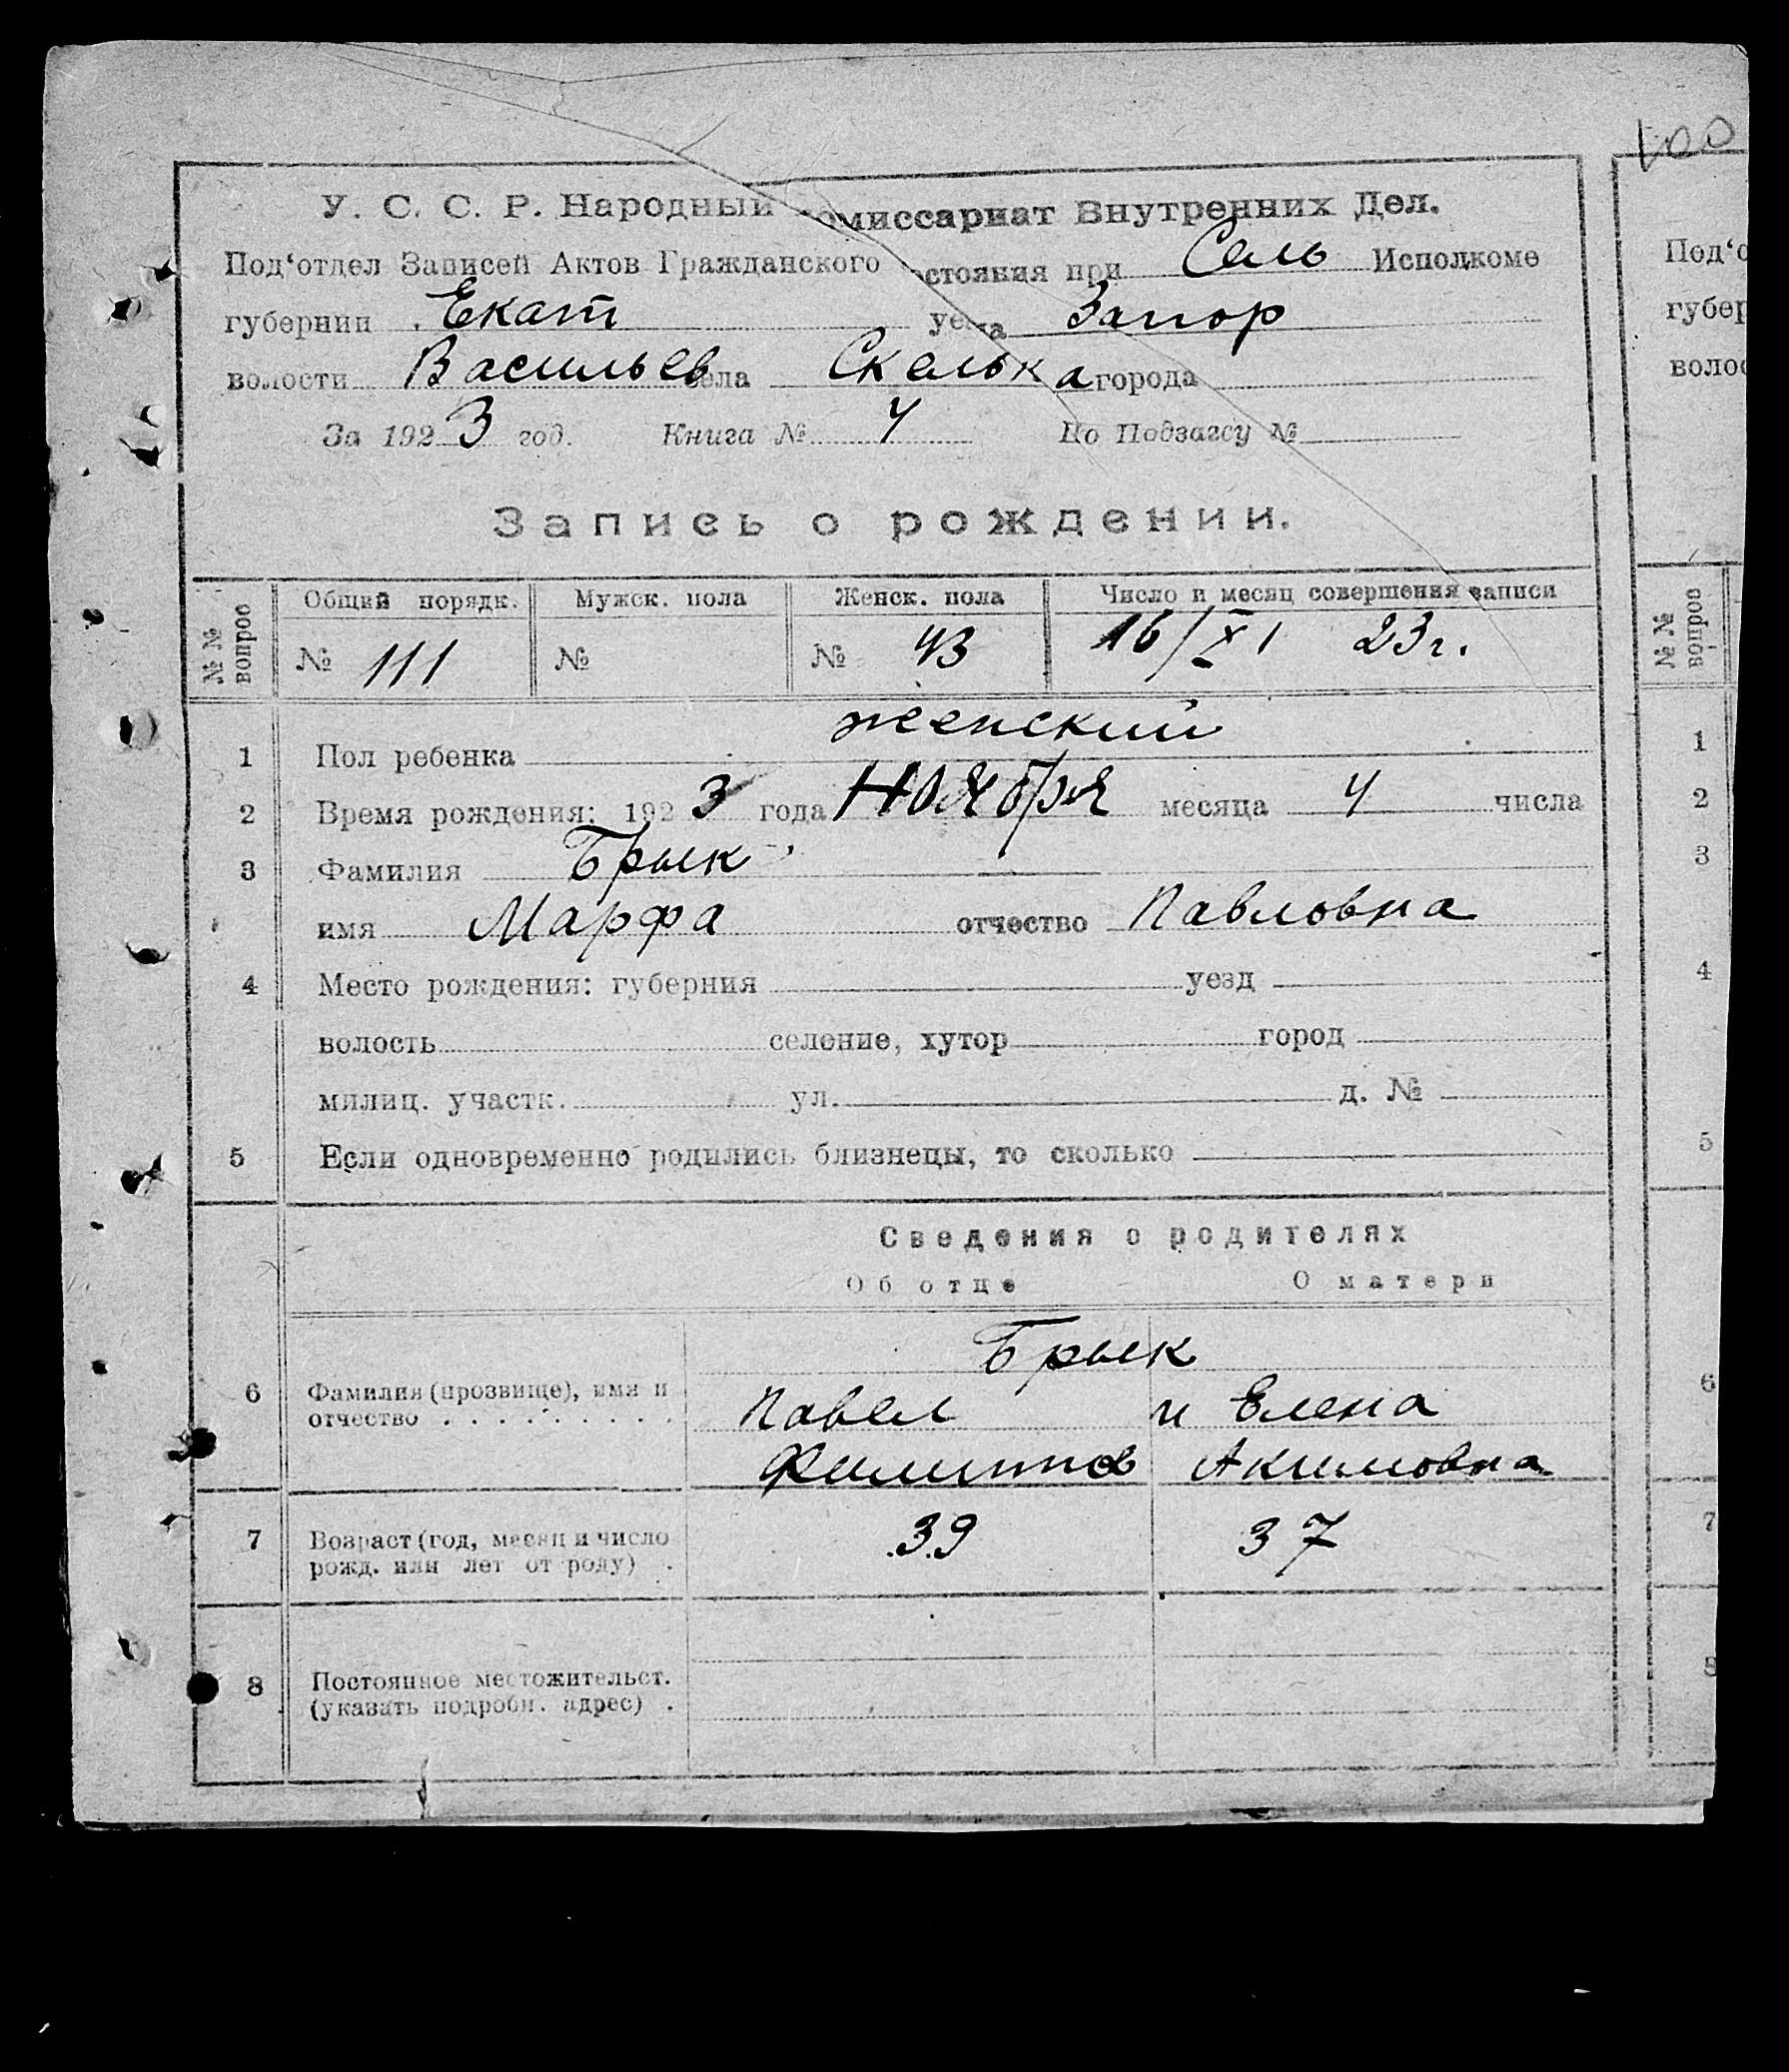 100
У. С. С. Р. Народный Комиссариат Внутренних Дел.
Под‘отдел Записей Актов Гражданского состояния при Сель Исполкоме
губернии Екат уезда Запор
волости Васильев села Скелька города
За 1923 год. Книга № 4 По Подзагсу №
Запись о рождении.
№ № вопрос
Общий порядк. Мужск. пола Женск. пола Число и месяц совершения записи
№ 111 № № 43 16/XI 23 г.
1 Пол ребенка женский
2 Время рождения: 1923 года Ноября месяца 4 числа
3 Фамилия Брыек
имя Марфа отчество Павловна
4 Место рождения: губерния уезд
волость селение, хутор город
милиц. участк. ул. д. №
5 Если одновременно родились близнецы, то сколько
Сведения о родителях
Об отце О матери
Брыек
6 Фамилия (прозвище), имя и отчество Павел и Елена
Филиппов Акимовна
7 Возраст (год, месяц и число рожд. или лет от роду) 39 37
8 Постоянное местожительст. (указать подробн. адрес)
Под‘о
губер
воло
№ № вопрос
1
2
3
4
5
6
7
8